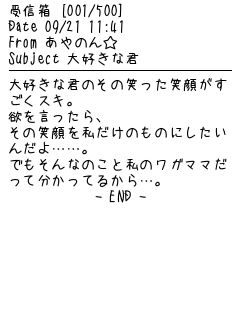 受信箱 [001/500]
Date 09/21 11:41
From あやのん☆
Subject 大好きな君
大好きな君のその笑った笑顔がす
ごくスキ。
欲を言ったら、
その笑顔を私だけのものにしたい
んだよ……。
でもそんなのこと私のワガママだ
って分かってるから…。
- END -